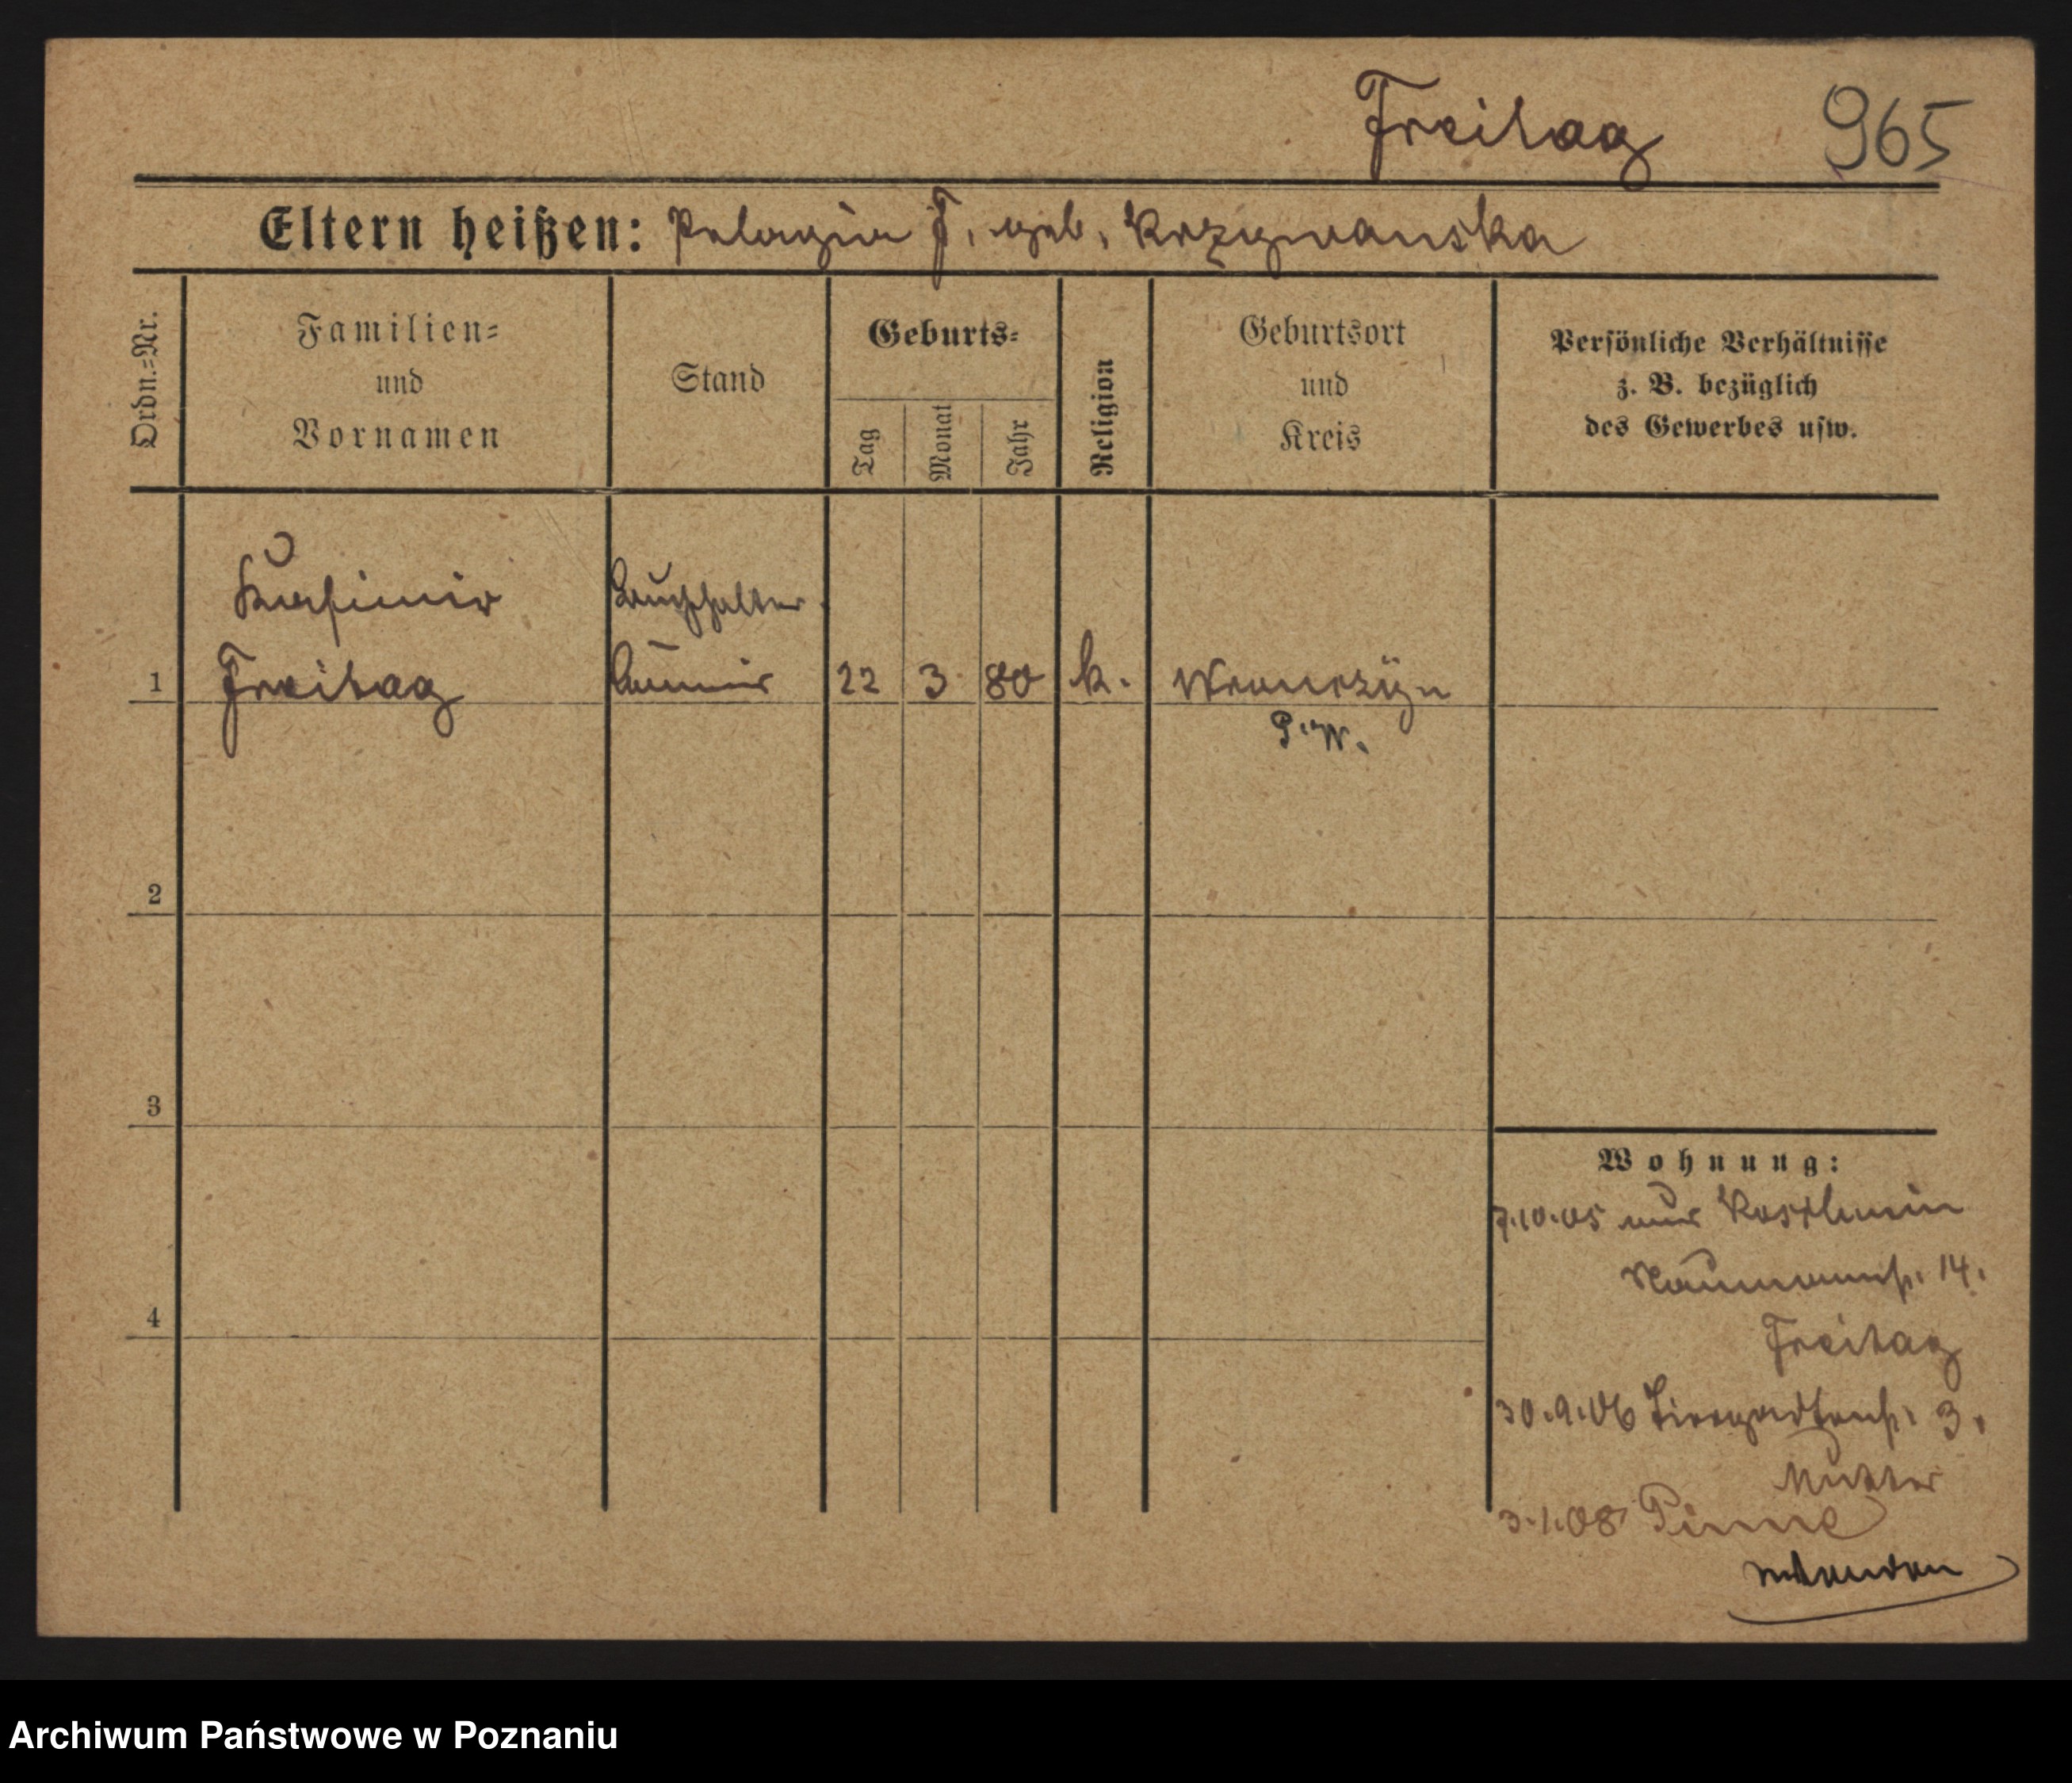 Freitag 965
Eltern heißen: Pelagia F. geb. Krzymanska
Ordn.=Nr.
Familien=
und
Vornamen
Stand
Geburts=
Tag
Monat
Jahr
Religion
Geburtsort
und
Kreis
Persönliche Verhältnisse
z. B. bezüglich
des Gewerbes usw.
Kasimir Buchhalter
1 Freitag 22 3 80 k. Wronczyn
P. W.
2
3
4
Wohnung:
7.10.05 aus Kosthein
Naumannstr. 14.
Freitag
30.9.06 Tiergartenstr. 3.
Mutter
3.1.08 Pinne
Archiwum Państwowe w Poznaniu